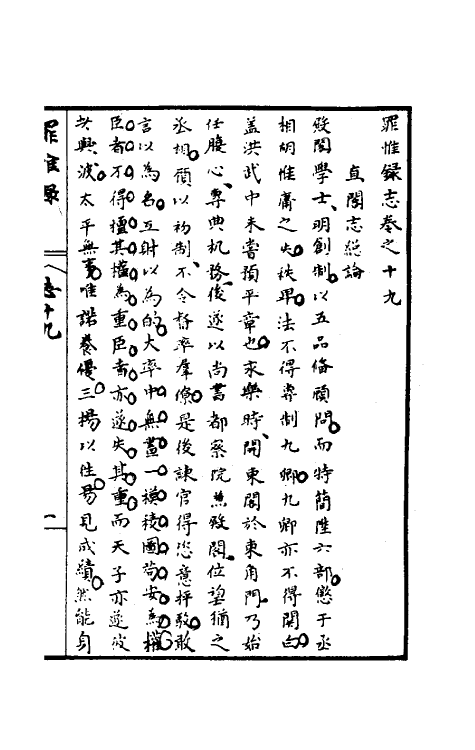 罪惟錄志卷之十九
直閣志總論
殿閣學士明創制以五品俻顧問而特簡陞六部懲于丞
相胡惟庸之失秩畢法不得專制九卿九卿亦不得關白
蓋洪武中未嘗預平章也永樂時開東閣於東角門乃始
任腹心專典机務後遂以尚書都察院兼殿閣位望猶之
丞相顧以初制不令督率羣僚是後諫官得恣意抨擊敢
言以為名互射以為的大率中無畫一模稜圖苟安為權
臣者不得擅其權為重臣者亦遂失其重而天子亦遂波
共興波太平無事唯諾養優三楊以往曷見成績然能身
罪惟錄
志十九
一